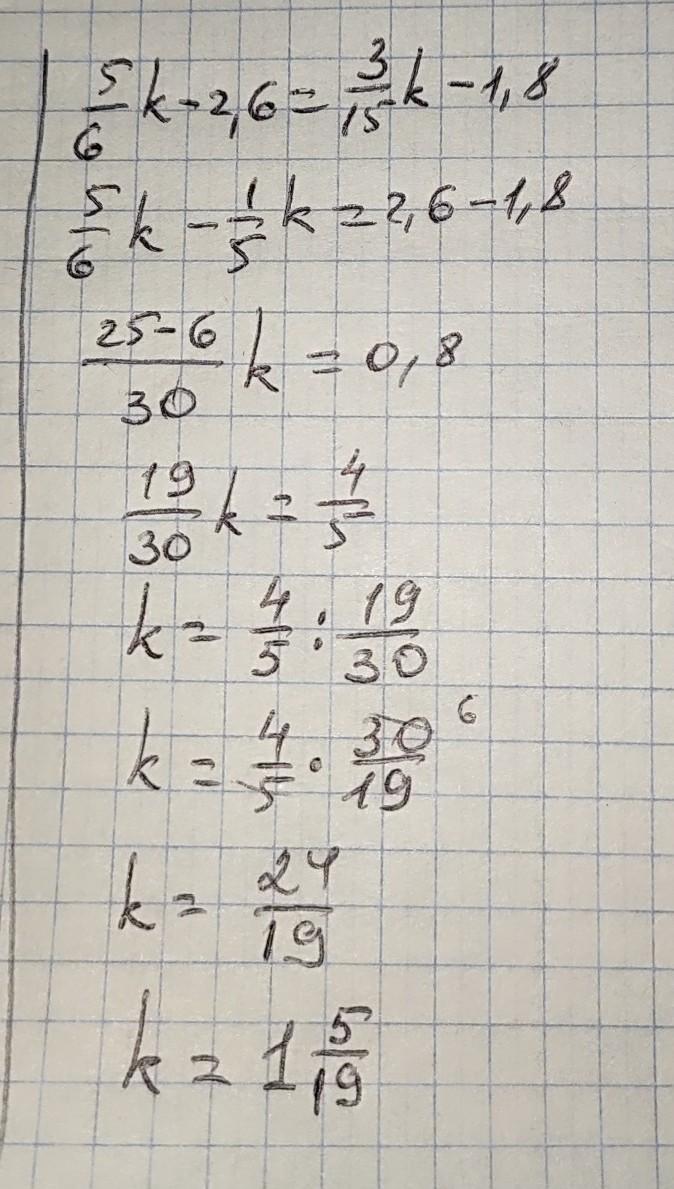 5/6 k - 2,6 = 3/15 k - 1,8
5/6 k - 1/5 k = 2,6 - 1,8
25-6/30 k = 0,8
19/30 k = 4/5
k = 4/5 : 19/30
k = 4/5 · 30/19 6
k = 24/19
k = 1 5/19